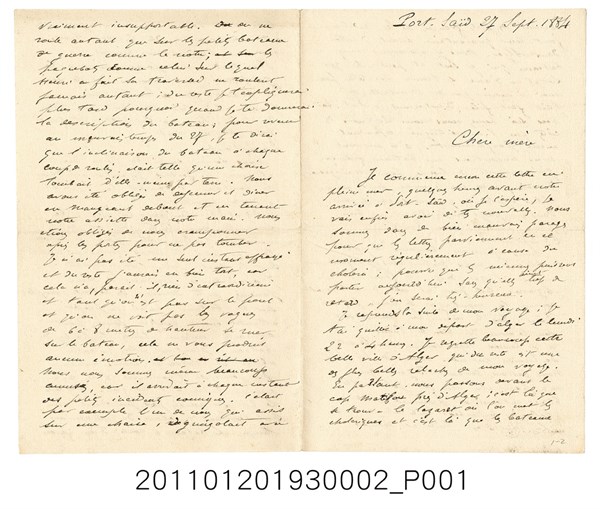 Port. Saïd 27 Sept. 1884
Chère mère
Je commence encore cette lettre en
pleine mer, quelques heures avant notre
arrivée à Port. Saïd. où j'espère, je
vais enfin avoir de tes nouvelles, nous
sommes dans de bien mauvais parages
pour que les lettres parviennent en ce
moment régulièrement à cause du
choléra; pourvu que les miennes puissent
partir aujourd'hui sans qu'elles trop de
retard j'en serai très heureux.
Je reprends la suite de mon voyage; Je
t'ai quittée à mon départ d'Alger le lundi
22 à 4 heures. Je regrette beaucoup cette
belle ville d'Alger qui du reste est une
des plus belles relaches de mon voyage.
En partant, nous passons devant le
cap Matifou près d'Alger, c'est là que
se trouve le lazaret où l'on met les
cholériques et c'est là que les bateaux
1-2
vraiment insupportable. On ne
roule autant que sur les petits bateaux
de guerre comme le notre, et sur les
paquebots comme celui sur lequel
Henri a fait sa traversée ne roulent
jamais autant; du reste je t'expliquerai
plus tard pourquoi quand je te donnerai
la description du bateau; pour revenir
au mauvais temps du 24, je te dirai
que l'inclinaison du bateau à chaque
coup de roulis était telle qu'une chaise
tombait d'elle-même par terre. Nous
avons été obligés de déjeuner et diner
en mangeant debout et en tenant
notre assiette dans notre main. Nous
étions obligés de nous cramponner
après les petits pour ne pas tomber.
Je n'ai pas été un seul instant effrayé
et du reste j'aurais eu bien tort, car
cela n'a, parait-il, rien d'extraordinaire
et tant qu'on est pas sur le pont
et qu'on ne voit pas les vagues
de 6 à 8 mètres de hauteur se ruer
sur le bateau, cela ne vous produit
aucune émotion.
Nous nous sommes même beaucoup
amusés, car il arrivait à chaque instant
des petits incidents comiques. C'était
par exemple l'un de nous qui assis
sur une chaise, dégringolait